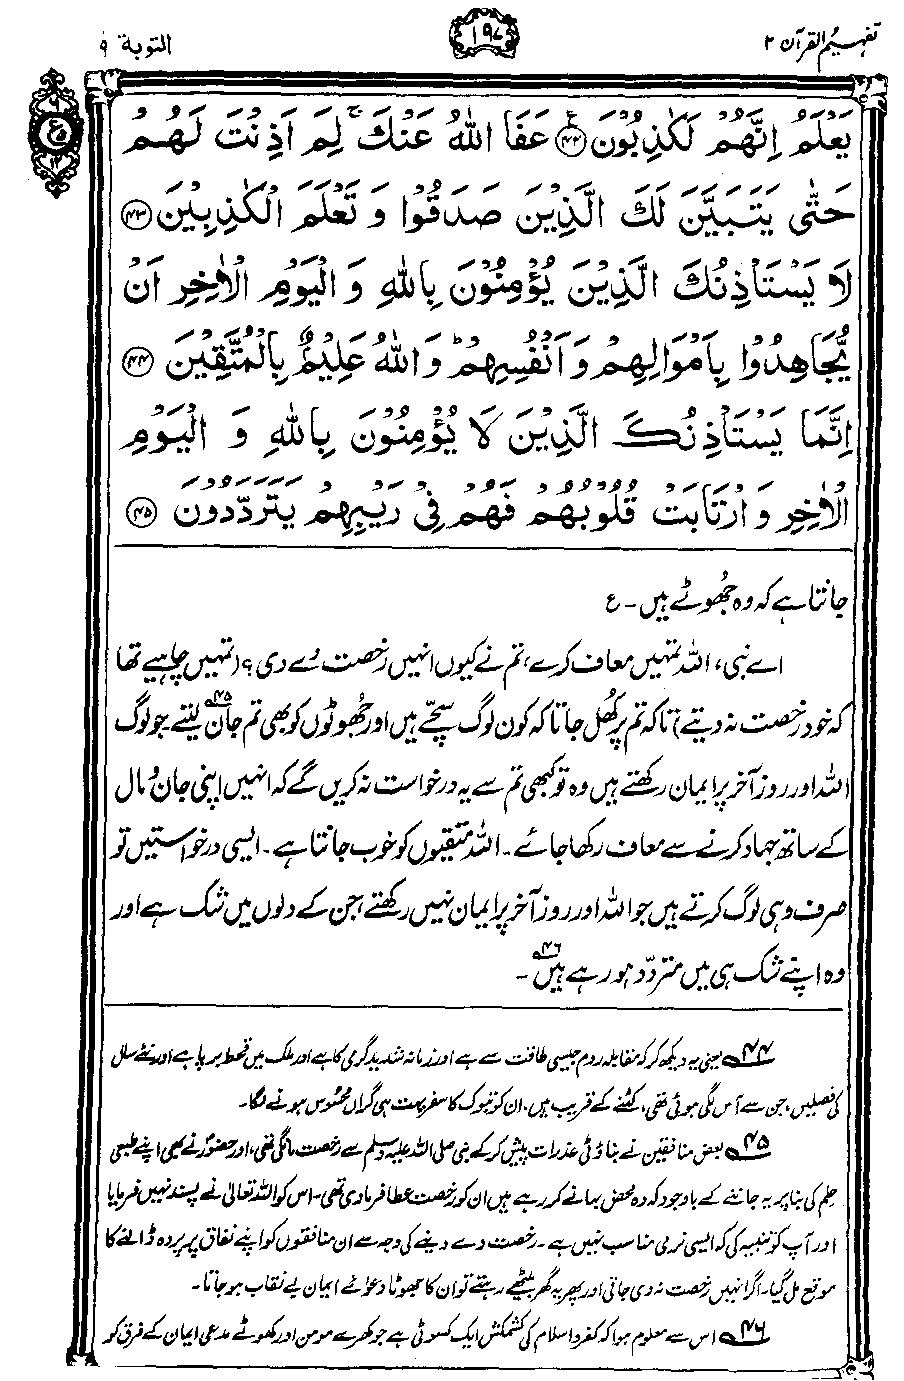 تفہیم القرآن ۲
۱۹۷
التوبۃ ۹
یَعْلَمُ اِنَّهُمْ لَكٰذِبُوْنَ ﴿۴۲﴾ عَفَا اللّٰهُ عَنْكَ ۚ لِمَ اَذِنْتَ لَهُمْ
حَتّٰى یَتَبَیَّنَ لَكَ الَّذِیْنَ صَدَقُوْا وَ تَعْلَمَ الْكٰذِبِیْنَ ﴿۴۳﴾
لَا یَسْتَاْذِنُكَ الَّذِیْنَ یُؤْمِنُوْنَ بِاللّٰهِ وَ الْیَوْمِ الْاٰخِرِ اَنْ
یُّجَاهِدُوْا بِاَمْوَالِهِمْ وَ اَنْفُسِهِمْ ؕ وَ اللّٰهُ عَلِیْمٌۢ بِالْمُتَّقِیْنَ ﴿۴۴﴾
اِنَّمَا یَسْتَاْذِنُكَ الَّذِیْنَ لَا یُؤْمِنُوْنَ بِاللّٰهِ وَ الْیَوْمِ
الْاٰخِرِ وَ ارْتَابَتْ قُلُوْبُهُمْ فَهُمْ فِیْ رَیْبِهِمْ یَتَرَدَّدُوْنَ ﴿۴۵﴾
جانتا ہے کہ وہ جُھوٹے ہیں۔ ع
اے نبی، اللہ تمہیں معاف کرے، تم نے کیوں انہیں رخصت دے دی؟ (تمہیں چاہیے تھا
کہ خود رخصت نہ دیتے) تاکہ تم پر کُھل جاتا کہ کون لوگ سچّے ہیں اور جُھوٹوں کو بھی تم جان لیتے۴۵۔ جو لوگ
اللہ اور روزِ آخر پر ایمان رکھتے ہیں وہ تو کبھی تم سے یہ درخواست نہ کریں گے کہ انہیں اپنی جان و مال
کے ساتھ جہاد کرنے سے معاف رکھا جائے۔ اللہ متقیوں کو خوب جانتا ہے۔ ایسی درخواستیں تو
صرف وہی لوگ کرتے ہیں جو اللہ اور روزِ آخر پر ایمان نہیں رکھتے، جن کے دلوں میں شک ہے اور
وہ اپنے شک ہی میں متردّد ہو رہے ہیں۴۶۔
۴۴ یعنی یہ دیکھ کر کہ مقابلہ روم جیسی طاقت سے ہے اور زمانہ شدید گرمی کا ہے اور ملک میں قحط برپا ہے اور نئے سال
کی فصلیں، جن سے آس لگی ہوئی تھی، کٹنے کے قریب ہیں، ان کو تبوک کا سفر بہت ہی گراں محسُوس ہونے لگا۔
۴۵ بعض منافقین نے بناوٹی عذرات پیش کر کے نبی صلی اللہ علیہ وسلم سے رخصت مانگی تھی، اور حضورؐ نے بھی اپنے طبعی
حِلم کی بنا پر یہ جاننے کے باوجود کہ وہ محض بہانے کر رہے ہیں ان کو رخصت عطا فرما دی تھی۔ اس کو اللہ تعالیٰ نے پسند نہیں فرمایا
اور آپ کو تنبیہ کی کہ ایسی نرمی مناسب نہیں ہے۔ رخصت دے دینے کی وجہ سے ان منافقوں کو اپنے نفاق پر پردہ ڈالنے کا
موقع مل گیا۔ اگر انہیں رخصت نہ دی جاتی اور پھر یہ گھر بیٹھے رہتے تو ان کا جھوٹا دعوائے ایمان بے نقاب ہو جاتا۔
۴۶ اس سے معلوم ہوا کہ کفر و اسلام کی کشمکش ایک کسوٹی ہے جو کھرے مومن اور کھوٹے مدعی ایمان کے فرق کو